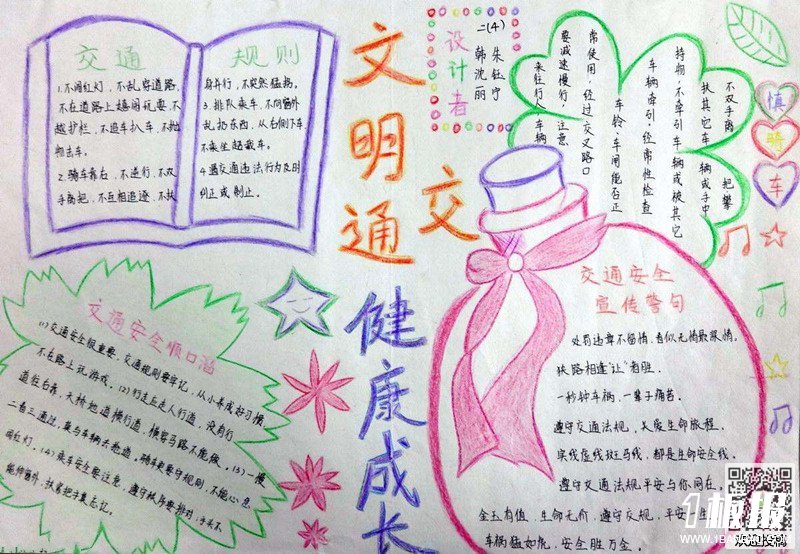 交通 规则
1.不闯红灯,不乱穿道路,
不在道路上嬉闹玩耍,不
越护栏,不追车扒车,不抛
物击车。
2.骑车靠右,不逆行,不双
手离把,不互相追逐,不扶
身并行,不突然猛拐。
3.排队乘车,不向窗外
乱扔东西,从右侧下车
不乘坐超载车。
4.遇交通违法行为及时
纠正或制止。
文明交通
健康成长
二(4)
朱钰宁
韩沈丽
设计者
慎骑车
不双手离把
攀扶其它车辆或手中
持物,不牵引车辆或被其它
车辆牵引,经常性检查
车铃、车闸能否正
常使用,经过交叉路口
要减速慢行,注意
来往行人、车辆
交通安全顺口溜
(1)交通安全很重要,交通规则要牢记,从小养成好习惯
不在路上玩游戏。(2)行走应走人行道,没有行
道往右靠,天桥地道横行道,横穿马路不能做。(3)一慢
二看三通过,莫与车辆去抢道。骑车更要守规则,不能心急
闯红灯。(4)乘车安全要注意,遵守秩序要排队,手头不
能伸窗外,扶紧把手莫忘记。
交通安全
宣传警句
处罚违章不留情,看似无情最深情。
狭路相逢“让”者胜。
一秒钟车祸,一辈子痛苦。
遵守交通法规,关爱生命旅程。
实线虚线斑马线,都是生命安全线。
遵守交通法规,平安与你同在。
金玉有值,生命无价,遵守交规,平安
车祸猛如虎,安全胜万全。
1板报
WWW.1BAN
欢迎投稿